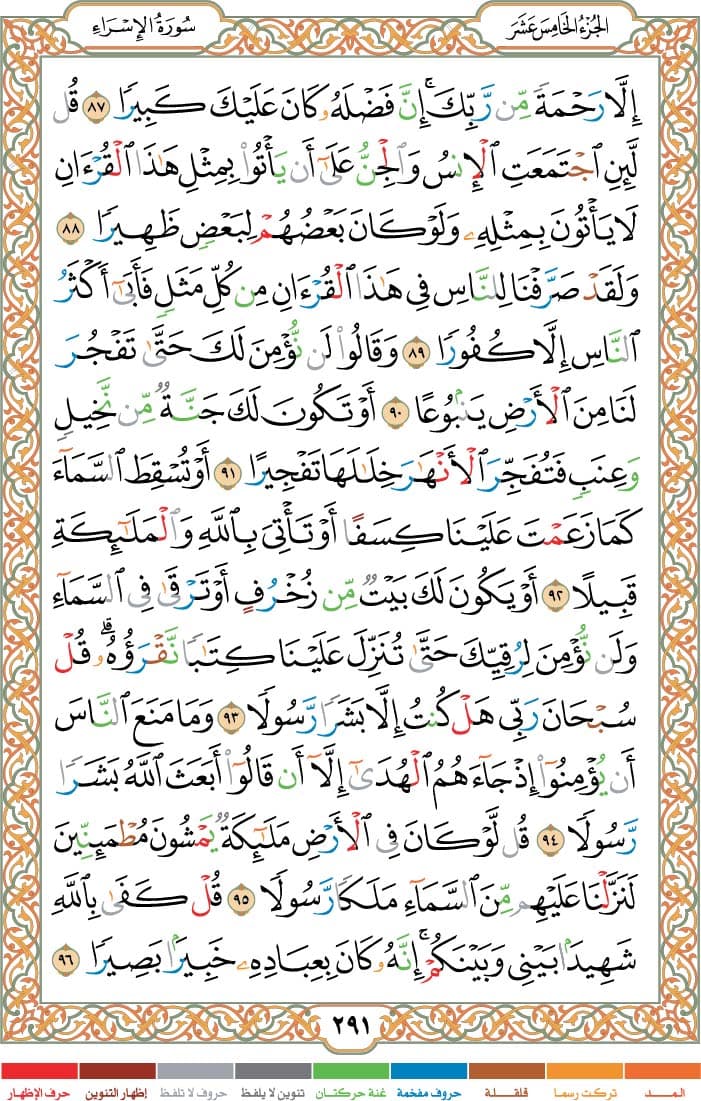 الجُزْءُ الخَامِسَ عَشَرَ
سُورَةُ الإِسْرَاءِ
إِلَّا رَحْمَةً مِّن رَّبِّكَ ۚ إِنَّ فَضْلَهُۥ كَانَ عَلَيْكَ كَبِيرًا ٨٧ قُل
لَّئِنِ ٱجْتَمَعَتِ ٱلْإِنسُ وَٱلْجِنُّ عَلَىٰٓ أَن يَأْتُوا۟ بِمِثْلِ هَـٰذَا ٱلْقُرْءَانِ
لَا يَأْتُونَ بِمِثْلِهِۦ وَلَوْ كَانَ بَعْضُهُمْ لِبَعْضٍ ظَهِيرًا ٨٨
وَلَقَدْ صَرَّفْنَا لِلنَّاسِ فِى هَـٰذَا ٱلْقُرْءَانِ مِن كُلِّ مَثَلٍ فَأَبَىٰٓ أَكْثَرُ
ٱلنَّاسِ إِلَّا كُفُورًا ٨٩ وَقَالُوا۟ لَن نُّؤْمِنَ لَكَ حَتَّىٰ تَفْجُرَ
لَنَا مِنَ ٱلْأَرْضِ يَنۢبُوعًا ٩٠ أَوْ تَكُونَ لَكَ جَنَّةٌ مِّن نَّخِيلٍ
وَعِنَبٍ فَتُفَجِّرَ ٱلْأَنْهَـٰرَ خِلَـٰلَهَا تَفْجِيرًا ٩١ أَوْ تُسْقِطَ ٱلسَّمَآءَ
كَمَا زَعَمْتَ عَلَيْنَا كِسَفًا أَوْ تَأْتِىَ بِٱللَّهِ وَٱلْمَلَـٰٓئِكَةِ
قَبِيلًا ٩٢ أَوْ يَكُونَ لَكَ بَيْتٌ مِّن زُخْرُفٍ أَوْ تَرْقَىٰ فِى ٱلسَّمَآءِ
وَلَن نُّؤْمِنَ لِرُقِيِّكَ حَتَّىٰ تُنَزِّلَ عَلَيْنَا كِتَـٰبًا نَّقْرَؤُهُۥ ۗ قُلْ
سُبْحَانَ رَبِّى هَلْ كُنتُ إِلَّا بَشَرًا رَّسُولًا ٩٣ وَمَا مَنَعَ ٱلنَّاسَ
أَن يُؤْمِنُوٓا۟ إِذْ جَآءَهُمُ ٱلْهُدَىٰٓ إِلَّآ أَن قَالُوٓا۟ أَبَعَثَ ٱللَّهُ بَشَرًا
رَّسُولًا ٩٤ قُل لَّوْ كَانَ فِى ٱلْأَرْضِ مَلَـٰٓئِكَةٌ يَمْشُونَ مُطْمَئِنِّينَ
لَنَزَّلْنَا عَلَيْهِم مِّنَ ٱلسَّمَآءِ مَلَكًا رَّسُولًا ٩٥ قُلْ كَفَىٰ بِٱللَّهِ
شَهِيدًۢا بَيْنِى وَبَيْنَكُمْ ۚ إِنَّهُۥ كَانَ بِعِبَادِهِۦ خَبِيرًۢا بَصِيرًا ٩٦
٢٩١
المـــد تركت رسما قلقـــلة حروف مفخمة غنة حركتان تنوين لا يلفظ حروف لا تلفظ إظهار التنوين حرف الإظهار